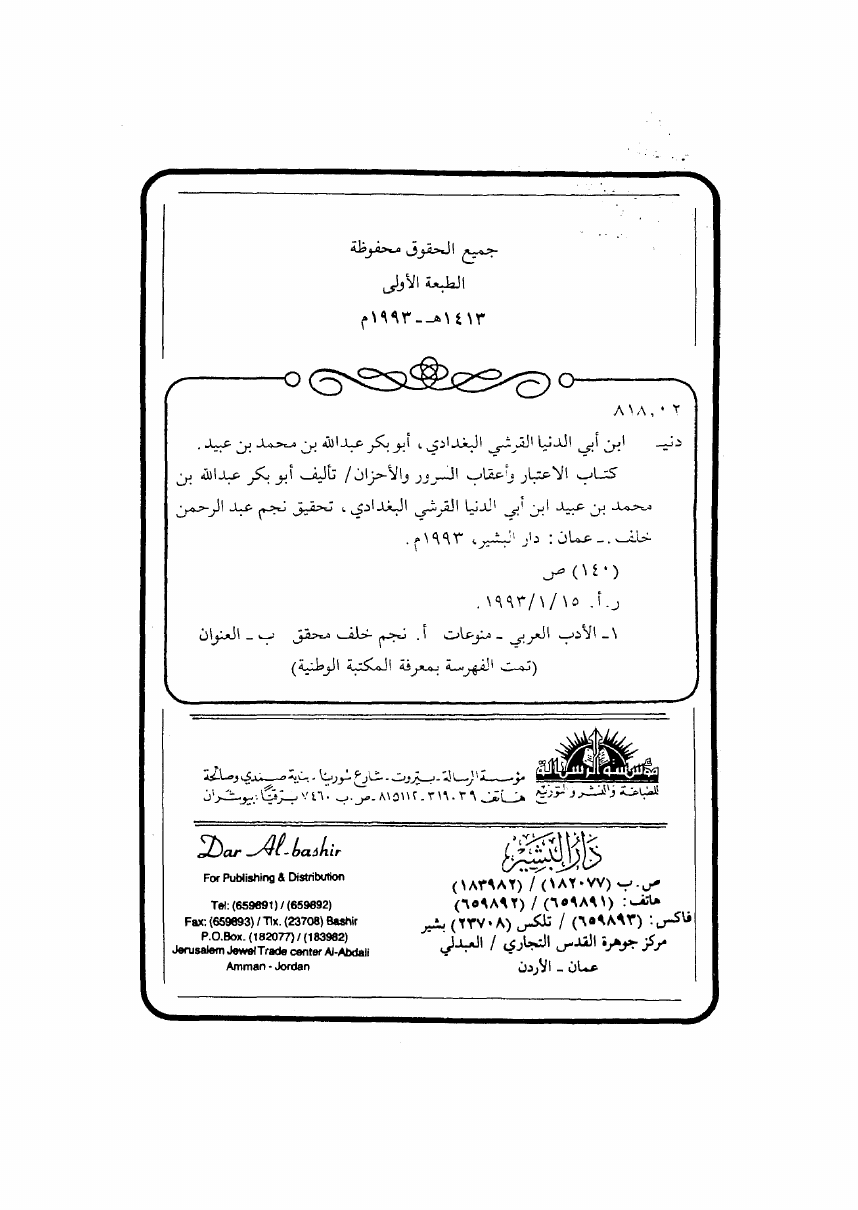 جميع الحقوق محفوظة
الطبعة الأولى
١٤١٣هـ ــ ١٩٩٣م
٨١٨,٠٢
دنيـ ابن أبي الدنيا القرشي البغدادي، أبو بكر عبدالله بن محمد بن عبيد.
كتاب الاعتبار وأعقاب السرور والأحزان/ تأليف أبو بكر عبدالله بن
محمد بن عبيد ابن أبي الدنيا القرشي البغدادي، تحقيق نجم عبد الرحمن
خلف .ـ عمان: دار البشير، ١٩٩٣م.
(١٤٠) ص
ر.أ. ١٩٩٣/١/١٥.
١ـ الأدب العربي ـ منوعات أ. نجم خلف محقق ب ـ العنوان
(تمت الفهرسة بمعرفة المكتبة الوطنية)
مؤسسة الرسالة
للطباعة والنشر والتوزيع
مؤسسة الرسالة ـ بيروت ـ شارع سوريا ـ بناية صمدي وصالحة
هاتف ٣١٩٠٣٩ ـ ٨١٥١١٢ ـ ص.ب ٧٤٦٠ برقياً: بيوشران
Dar Al-bashir
For Publishing & Distribution
Tel: (659891) / (659892)
Fax: (659893) / Tlx. (23708) Bashir
P.O.Box. (182077) / (183982)
Jerusalem Jewel Trade center Al-Abdali
Amman - Jordan
دار البشير
ص.ب (١٨٢٠٧٧) / (١٨٣٩٨٢)
هاتف: (٦٥٩٨٩١) / (٦٥٩٨٩٢)
فاكس: (٦٥٩٨٩٣) / تلكس (٢٣٧٠٨) بشير
مركز جوهرة القدس التجاري / العبدلي
عمان ـ الأردن